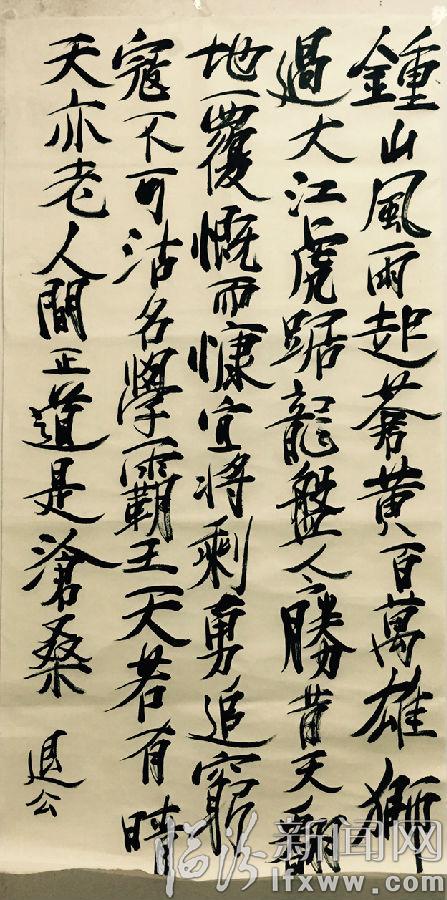 鍾山風雨起蒼黃百萬雄獅
過大江虎踞龍盤人勝昔天翻
地覆慨而慷宜將剩勇追窮
寇不可沽名學霸王天若有晴
天亦老人間正道是滄桑
退公
临汾新闻网
lfxww.com